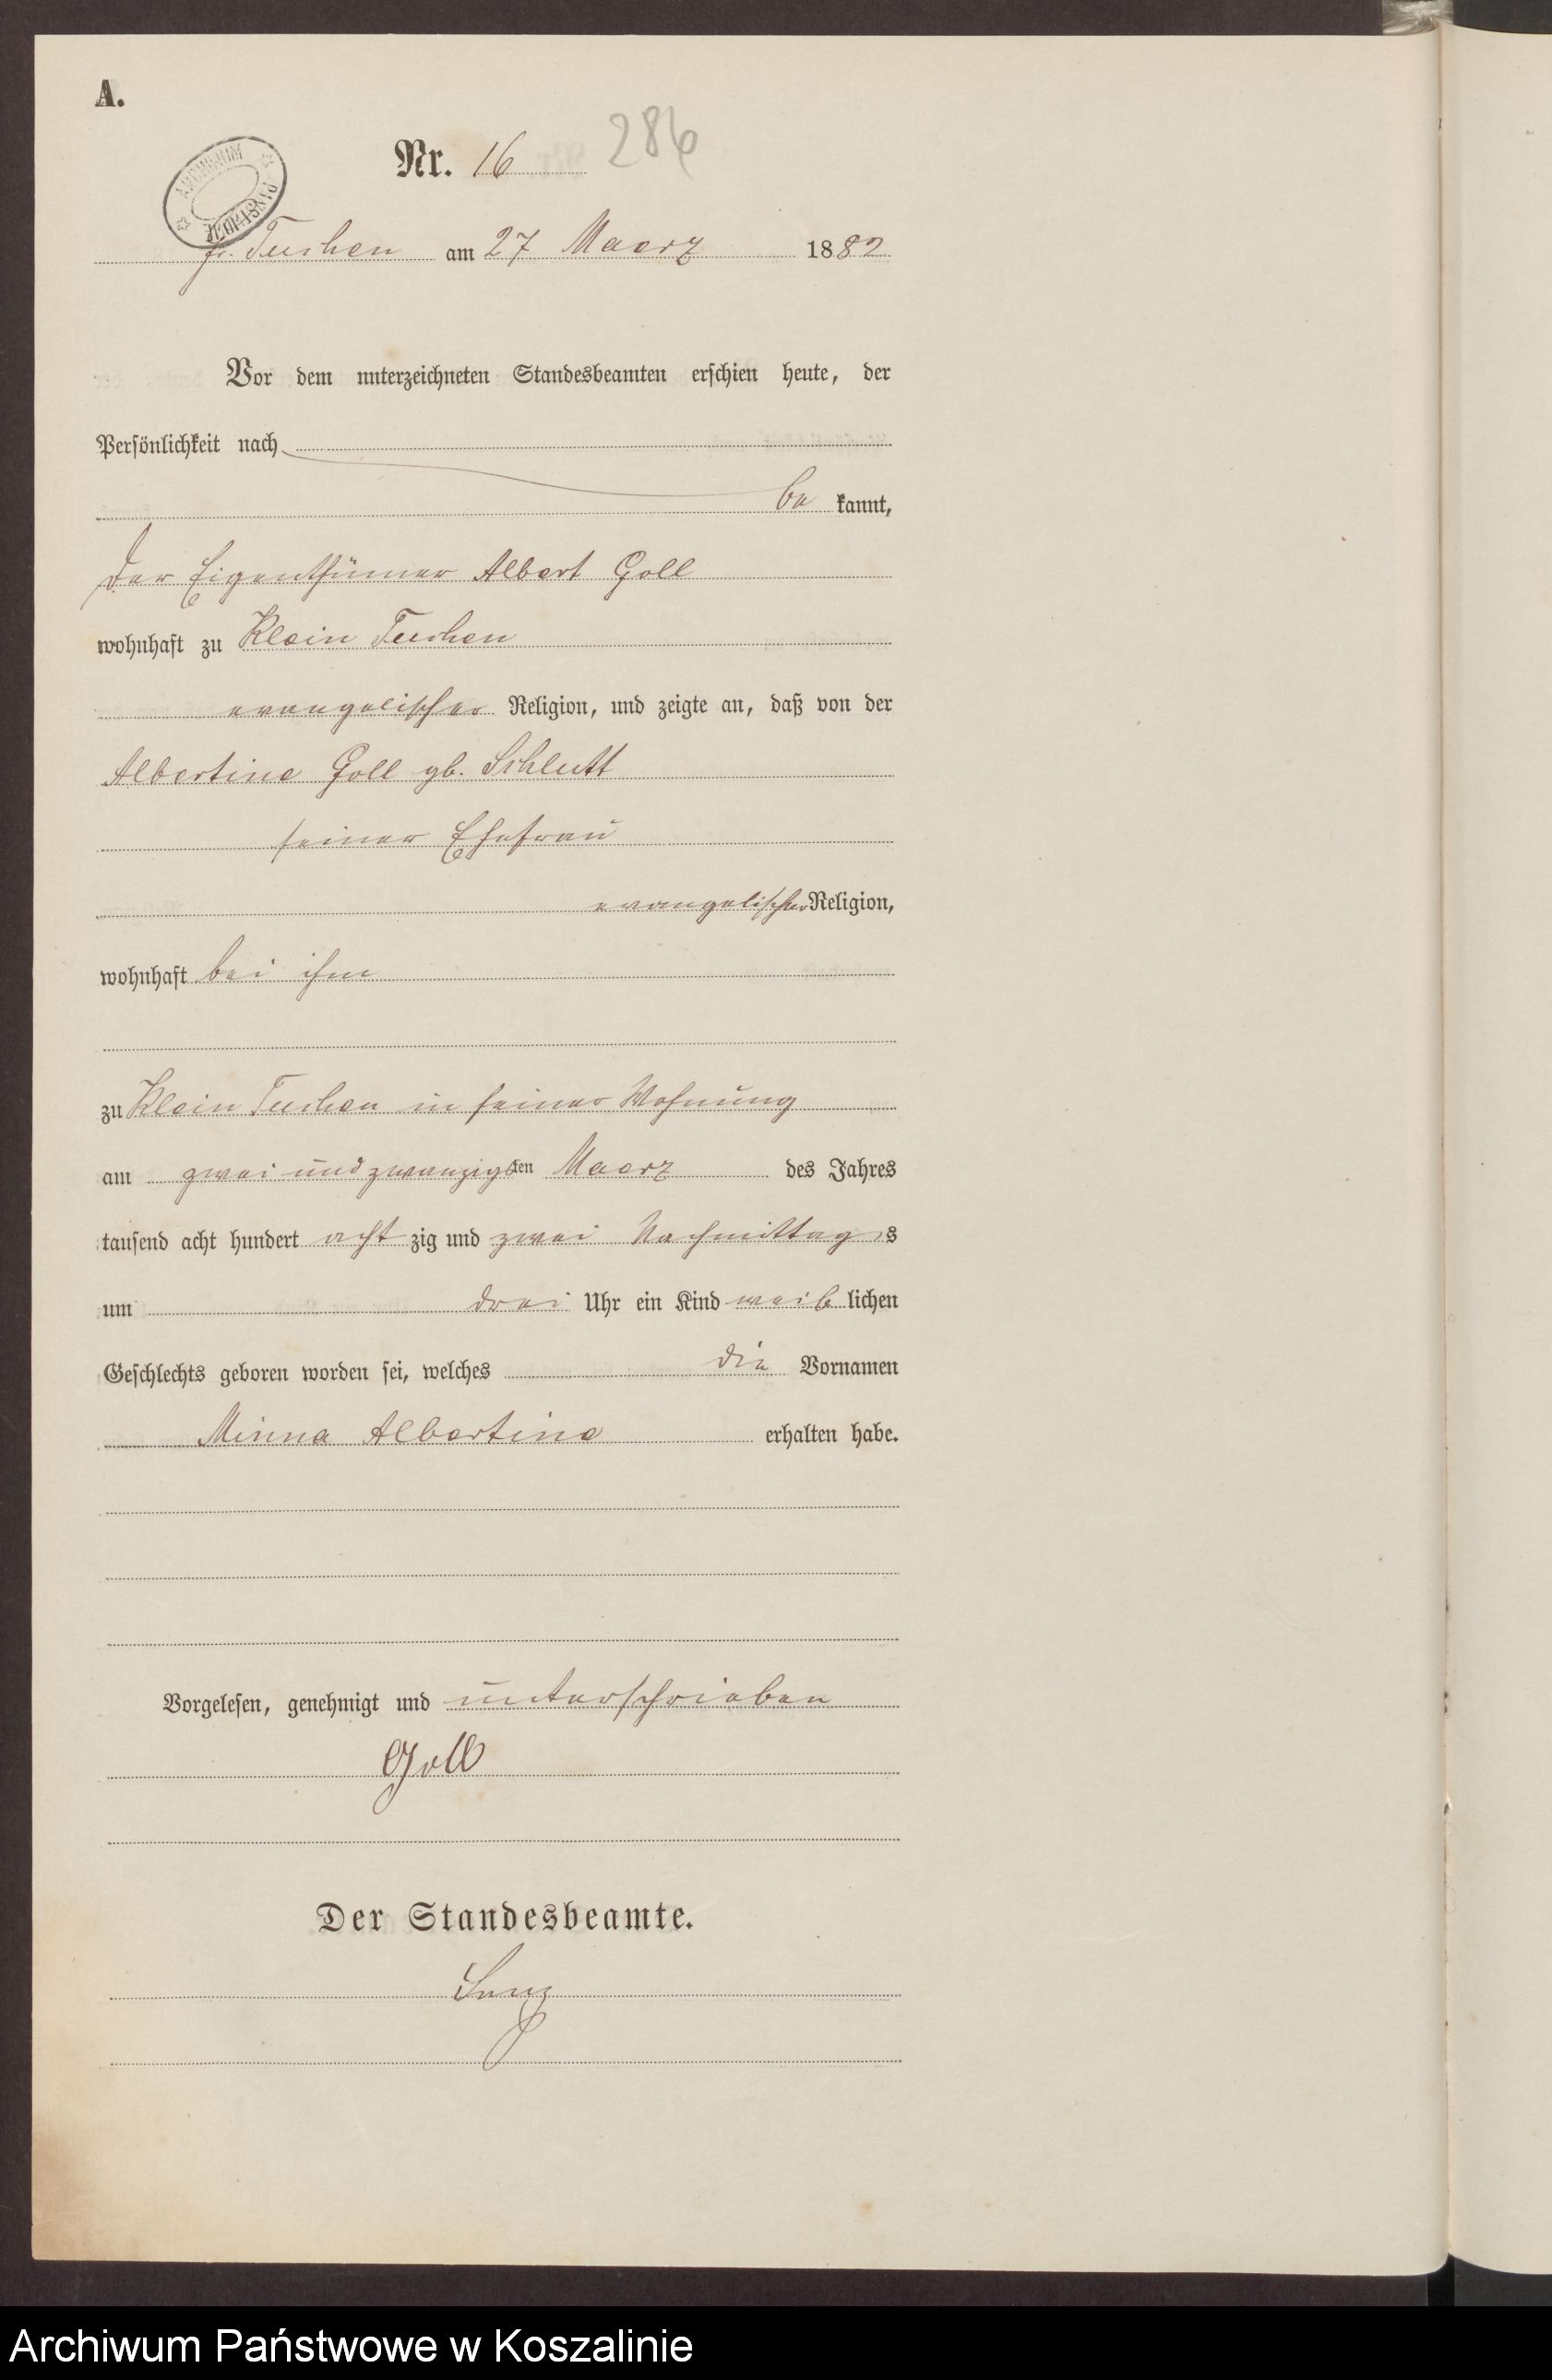 A.
Nr. 16
286
ARCHIWUM PAŃSTWOWE
gr. Tuchen am 27 Maerz 1882
Vor dem unterzeichneten Standesbeamten erschien heute, der
Persönlichkeit nach
be kannt,
der Eigenthümer Albert Goll
wohnhaft zu Klein Tuchen
evangelischer Religion, und zeigte an, daß von der
Albertine Goll gb. Schlutt
seiner Ehefrau
evangelischer Religion,
wohnhaft bei ihm
zu Klein Tuchen in seiner Wohnung
am zwei und zwanzigsten Maerz des Jahres
tausend acht hundert acht zig und zwei Nachmittag s
um drei Uhr ein Kind weib lichen
Geschlechts geboren worden sei, welches die Vornamen
Minna Albertine erhalten habe.
Vorgelesen, genehmigt und unterschrieben
Goll
Der Standesbeamte.
Archiwum Państwowe w Koszalinie